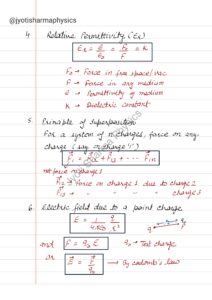 @jyotisharmaphysics
4. Relative Permittivity (εr)
εr = ε/ε0 = F0/F = K
F0 → Force in free space/vac
F → Force in any medium
ε → Permittivity of medium
K → Dielectric constant
5. Principle of Superposition
For a system of n charges, force on any
charge (say on charge 'i')
F1 = F12 + F13 + ---- F1n
net force n charges
F12 → Force on charge 1 due to charge 2
F13 → " " " " " " charge 3
6. Electric field due to a point charge
E = 1/4πε0 q/r²
and F = q0 E q0 → Test charge
or E = F/q0 → by coulomb's law